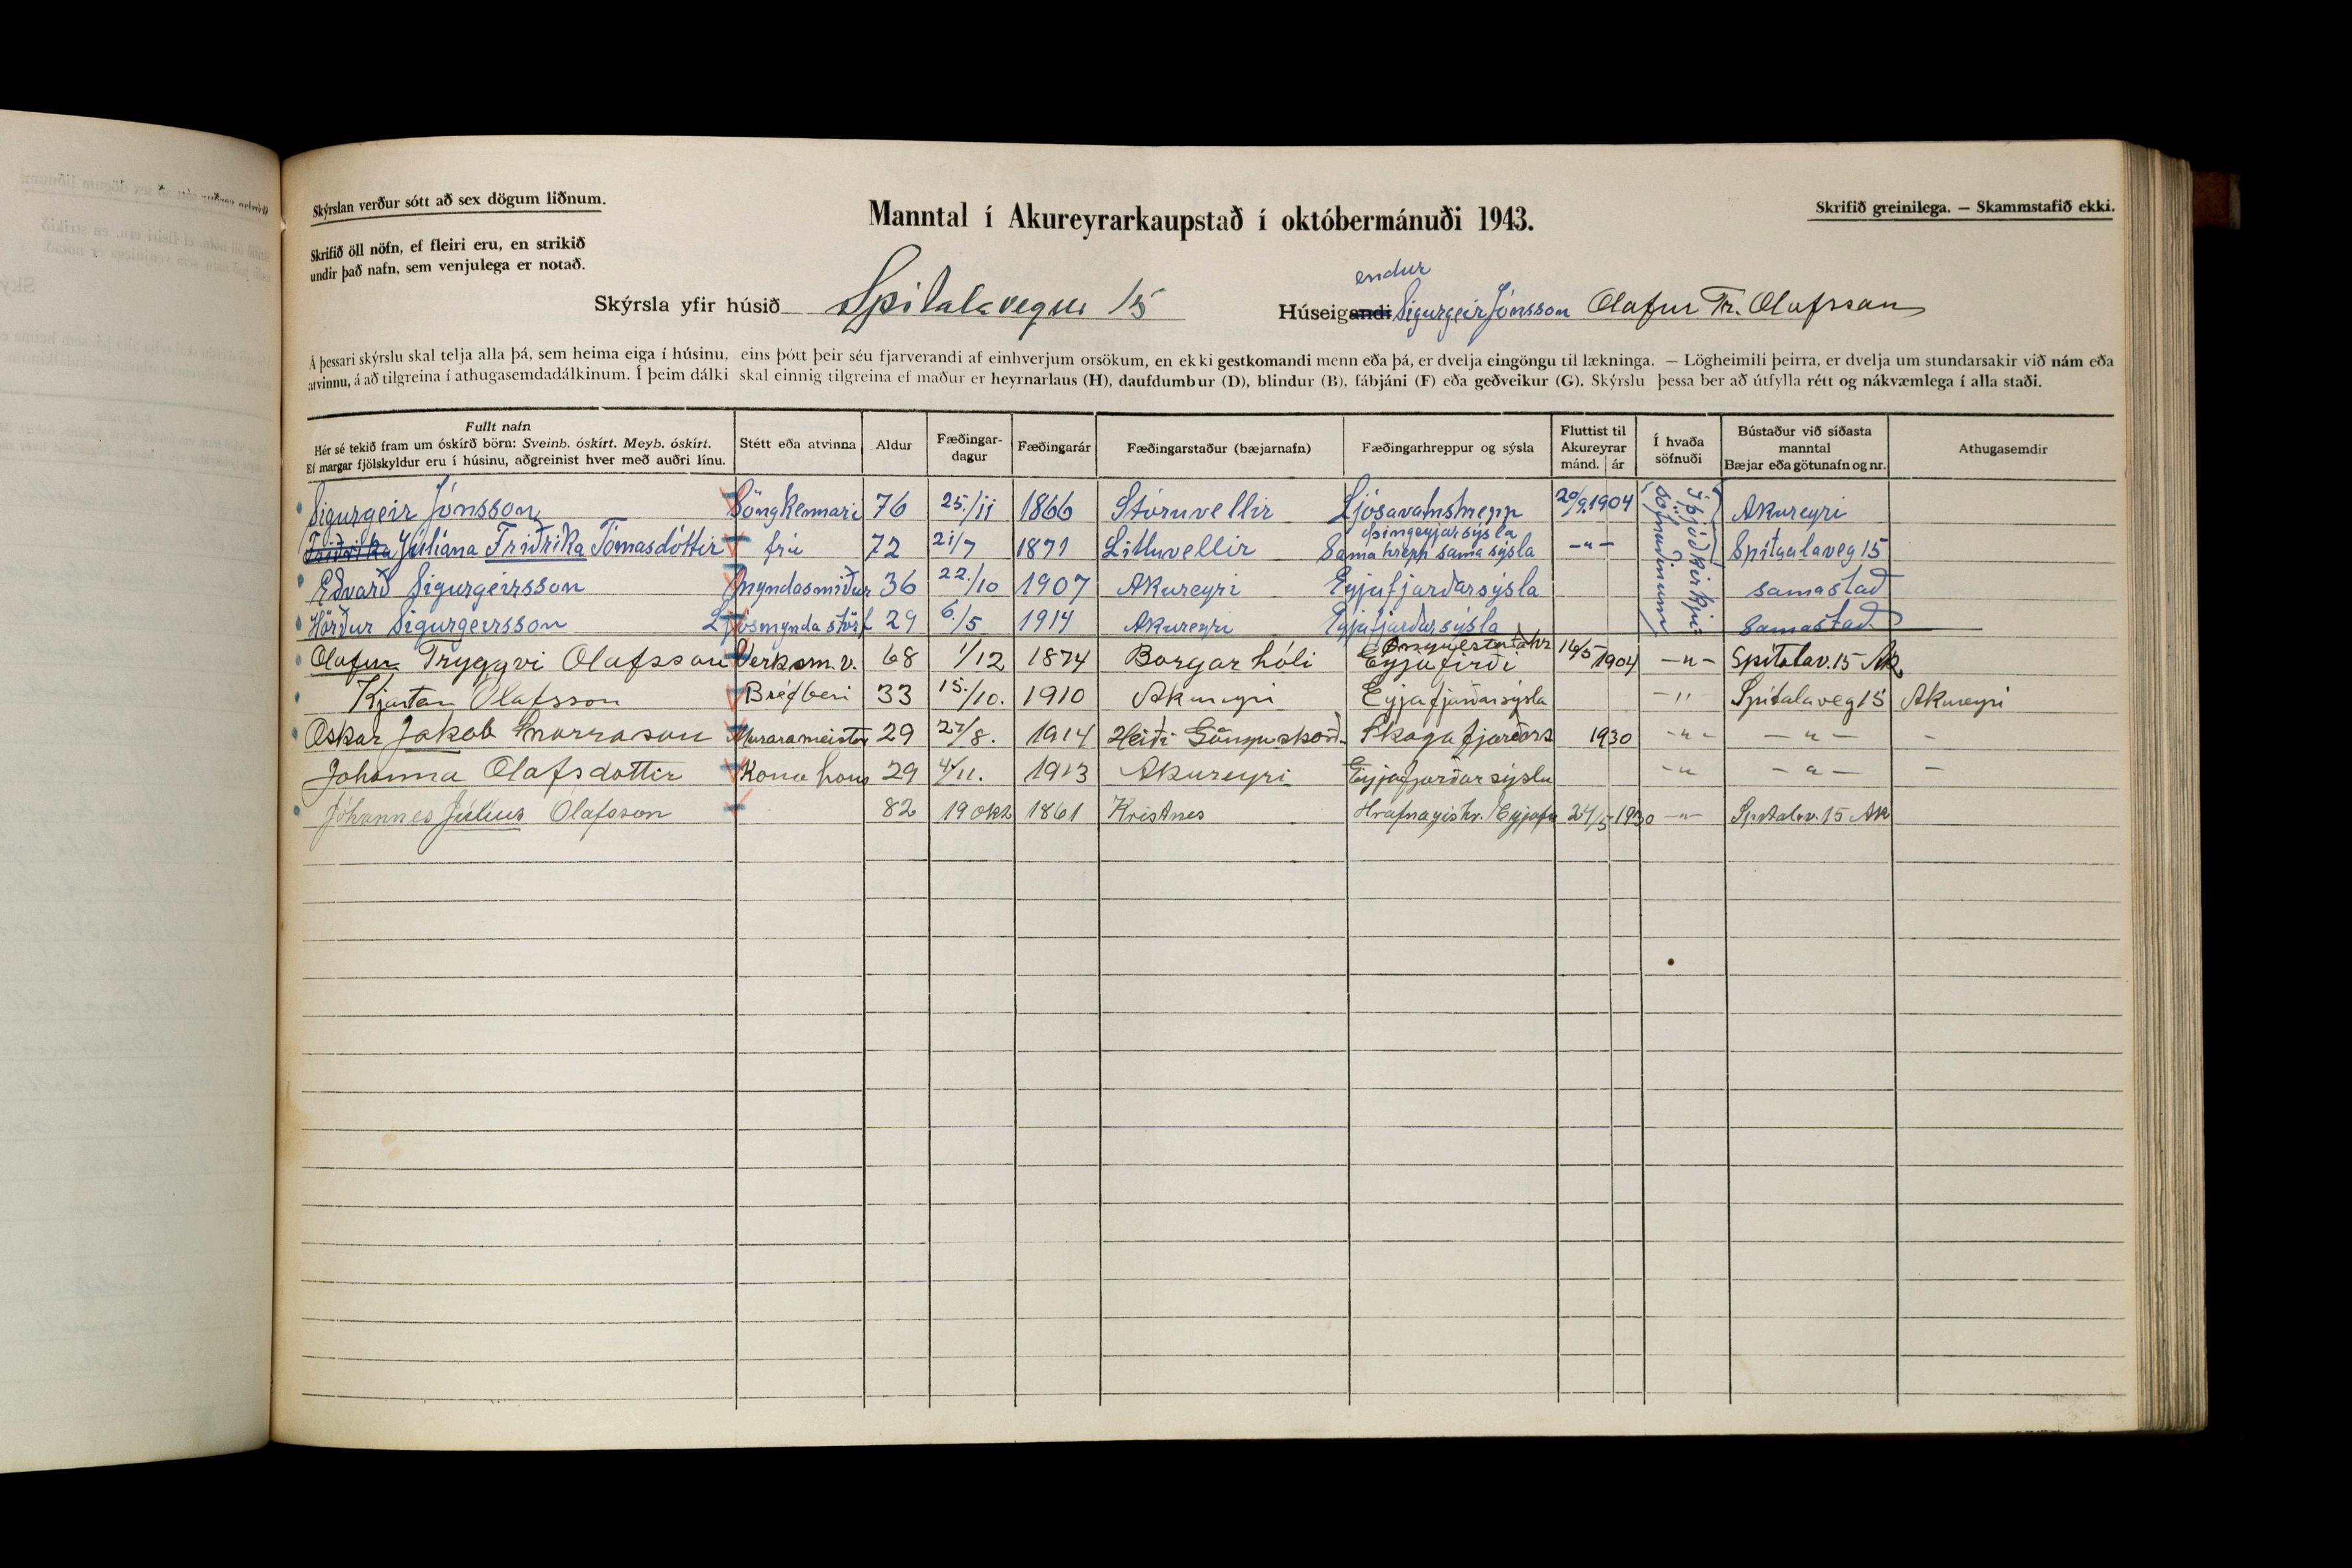 Skýrslan verður sótt að sex dögum liðnum.
Manntal í Akureyrarkaupstað í októbermánuði 1943.
Skrifið greinilega. — Skammstafið ekki.
Skrifið öll nöfn, ef fleiri eru, en strikið
undir það nafn, sem venjulega er notað.
endur
Skýrsla yfir húsið Spítalavegur 15 Húseigandi Sigurgeir Jónsson Olafur Tr. Olafsson
Á þessari skýrslu skal telja alla þá, sem heima eiga í húsinu, eins þótt þeir séu fjarverandi af einhverjum orsökum, en ekki gestkomandi menn eða þá, er dvelja eingöngu til lækninga. — Lögheimili þeirra, er dvelja um stundarsakir við nám eða
atvinnu, á að tilgreina í athugasemdadálkinum. Í þeim dálki skal einnig tilgreina ef maður er heyrnarlaus (H), daufdumbur (D), blindur (B), fábjáni (F) eða geðveikur (G). Skýrslu þessa ber að útfylla rétt og nákvæmlega í alla staði.
Fullt nafn
Hér sé tekið fram um óskírð börn: Sveinb. óskírt. Meyb. óskírt.
Ef margar fjölskyldur eru í húsinu, aðgreinist hver með auðri línu.
Stétt eða atvinna
Aldur
Fæðingar-
dagur
Fæðingarár
Fæðingarstaður (bæjarnafn)
Fæðingarhreppur og sýsla
Fluttist til
Akureyrar
mánd. ár
Í hvaða
söfnuði
Bústaður við síðasta
manntal
Bæjar eða götunafn og nr.
Athugasemdir
Sigurgeir Jónsson Söngkennari 76 25./11 1866 Stóruvellir Ljósavatnshrepp 20/9 1904 Akureyri
Þingeyjarsýsla
Friðrika Júlíana Friðrika Tómasdóttir frú 72 21/7 1871 Litluvellir Sama hrepp sama sýsla -"- Spítalaveg 15
Í þjóðkirkju-
söfnuðinum
Eðvarð Sigurgeirsson myndasmiður 36 22./10 1907 Akureyri Eyjafjarðarsýsla samastað
Hörður Sigurgeirsson Ljósmynda störf 29 6./5 1914 Akureyri Eyjafjarðarsýsla Samastað
Olafur Tryggvi Olafsson Verksm.v. 68 1/12 1874 Borgarhóli Eyjafirði 16/5 1904 -"- Spítalav. 15 Ak
Kjartan Olafsson Bréfberi 33 15./10. 1910 Akureyri Eyjafjarðarsýsla -" Spítalaveg 15 Akureyri
Oskar Jakob Snorrason Murarameistar 29 27/8. 1914 Heiði Gönguskörð. Skagafjarðars 1930 -"- -"- -
Johanna Olafsdottir Kona hans 29 4/11. 1913 Akureyri Eyjafjarðarsýslu -" -"- -
Jóhannes Júlíus Ólafsson 82 19 okt 1861 Kristnes Hrafnagishr. Eyjafj 24/5 1930 -"- Spítalav. 15 Ak